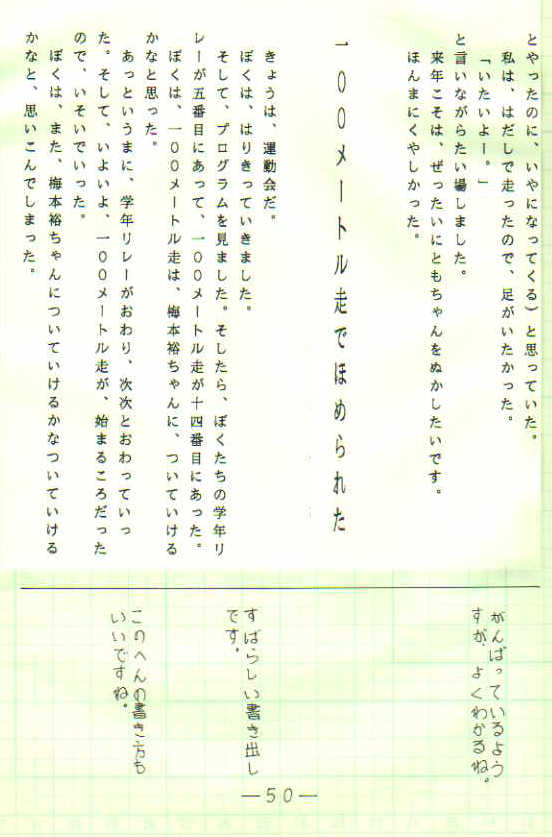 とやったのに、いやになってくる）と思っていた。
私は、はだしで走ったので、足がいたかった。
「いたいよー。」
と言いながらたい場しました。
来年こそは、ぜったいにともちゃんをぬかしたいです。
ほんまにくやしかった。
一００メートル走でほめられた
きょうは、運動会だ。
ぼくは、はりきっていきました。
そして、プログラムを見ました。そしたら、ぼくたちの学年リ
レーが五番目にあって、一００メートル走が十四番目にあった。
ぼくは、一００メートル走は、梅本裕ちゃんに、ついていける
かなと思った。
あっというまに、学年リレーがおわり、次次とおわっていっ
た。そして、いよいよ、一００メートル走が、始まるころだった
ので、いそいでいった。
ぼくは、また、梅本裕ちゃんについていけるかなついていける
かなと、思いこんでしまった。
がんばっているよう
すが、よくわかるね。
すばらしい書き出し
です。
このへんの書き方も
いいですね。
—50—